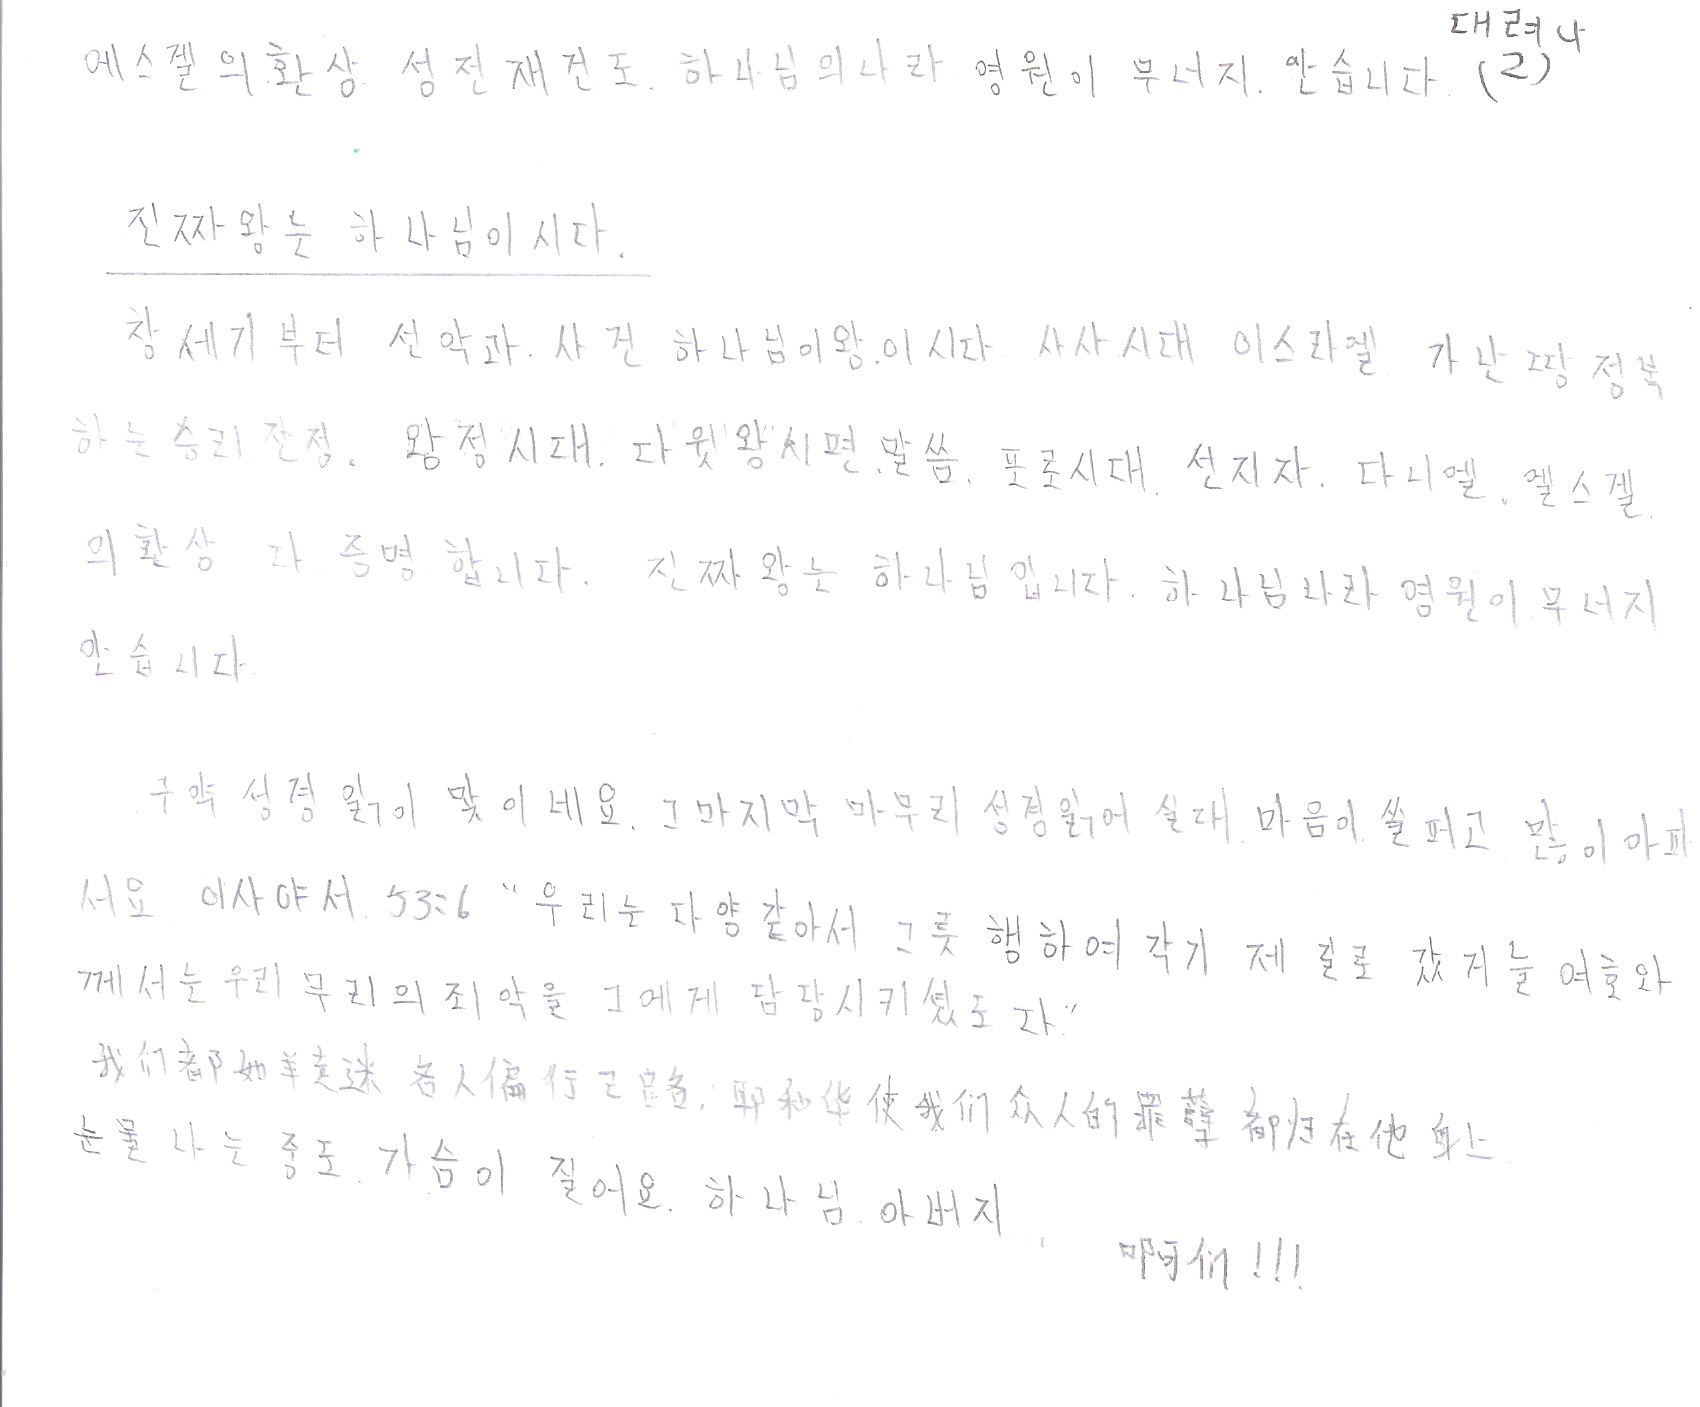 대려나
에스겔의 환상 성전재건도. 하나님의나라 영원이 무너지. 안습니다. (2)
진짜왕는 하나님이시다.
창세기부터 선악과. 사건 하나님이왕.이시다 사사시대 이스라겔 가난땅정복
하는승리잔정. 왕정시대. 다윗왕시편.말씀. 포로시대. 선지자. 다니엘. 엘스겔.
의환상 다 증명합니다. 진짜왕는 하나님입니다. 하나님나라 영원이 무너지
안습니다.
구약성경 읽이 맞이네요. 그마지막 마무리 성경읽어실대 마음이 쓸퍼고 많이아퍼
서요 이사야서 53:6 "우리는 다양같아서 그릇 행하여 각기 제 길로 갔거늘 여호와
께서는 우리 무리의 죄악을 그에게 담당시키셨도다."
我们都如羊走迷 各人偏行己路, 耶和华使我们众人的罪孽都归在他身上
눈물 나는중도. 가슴이 질어요. 하나님 아버지
们!!!